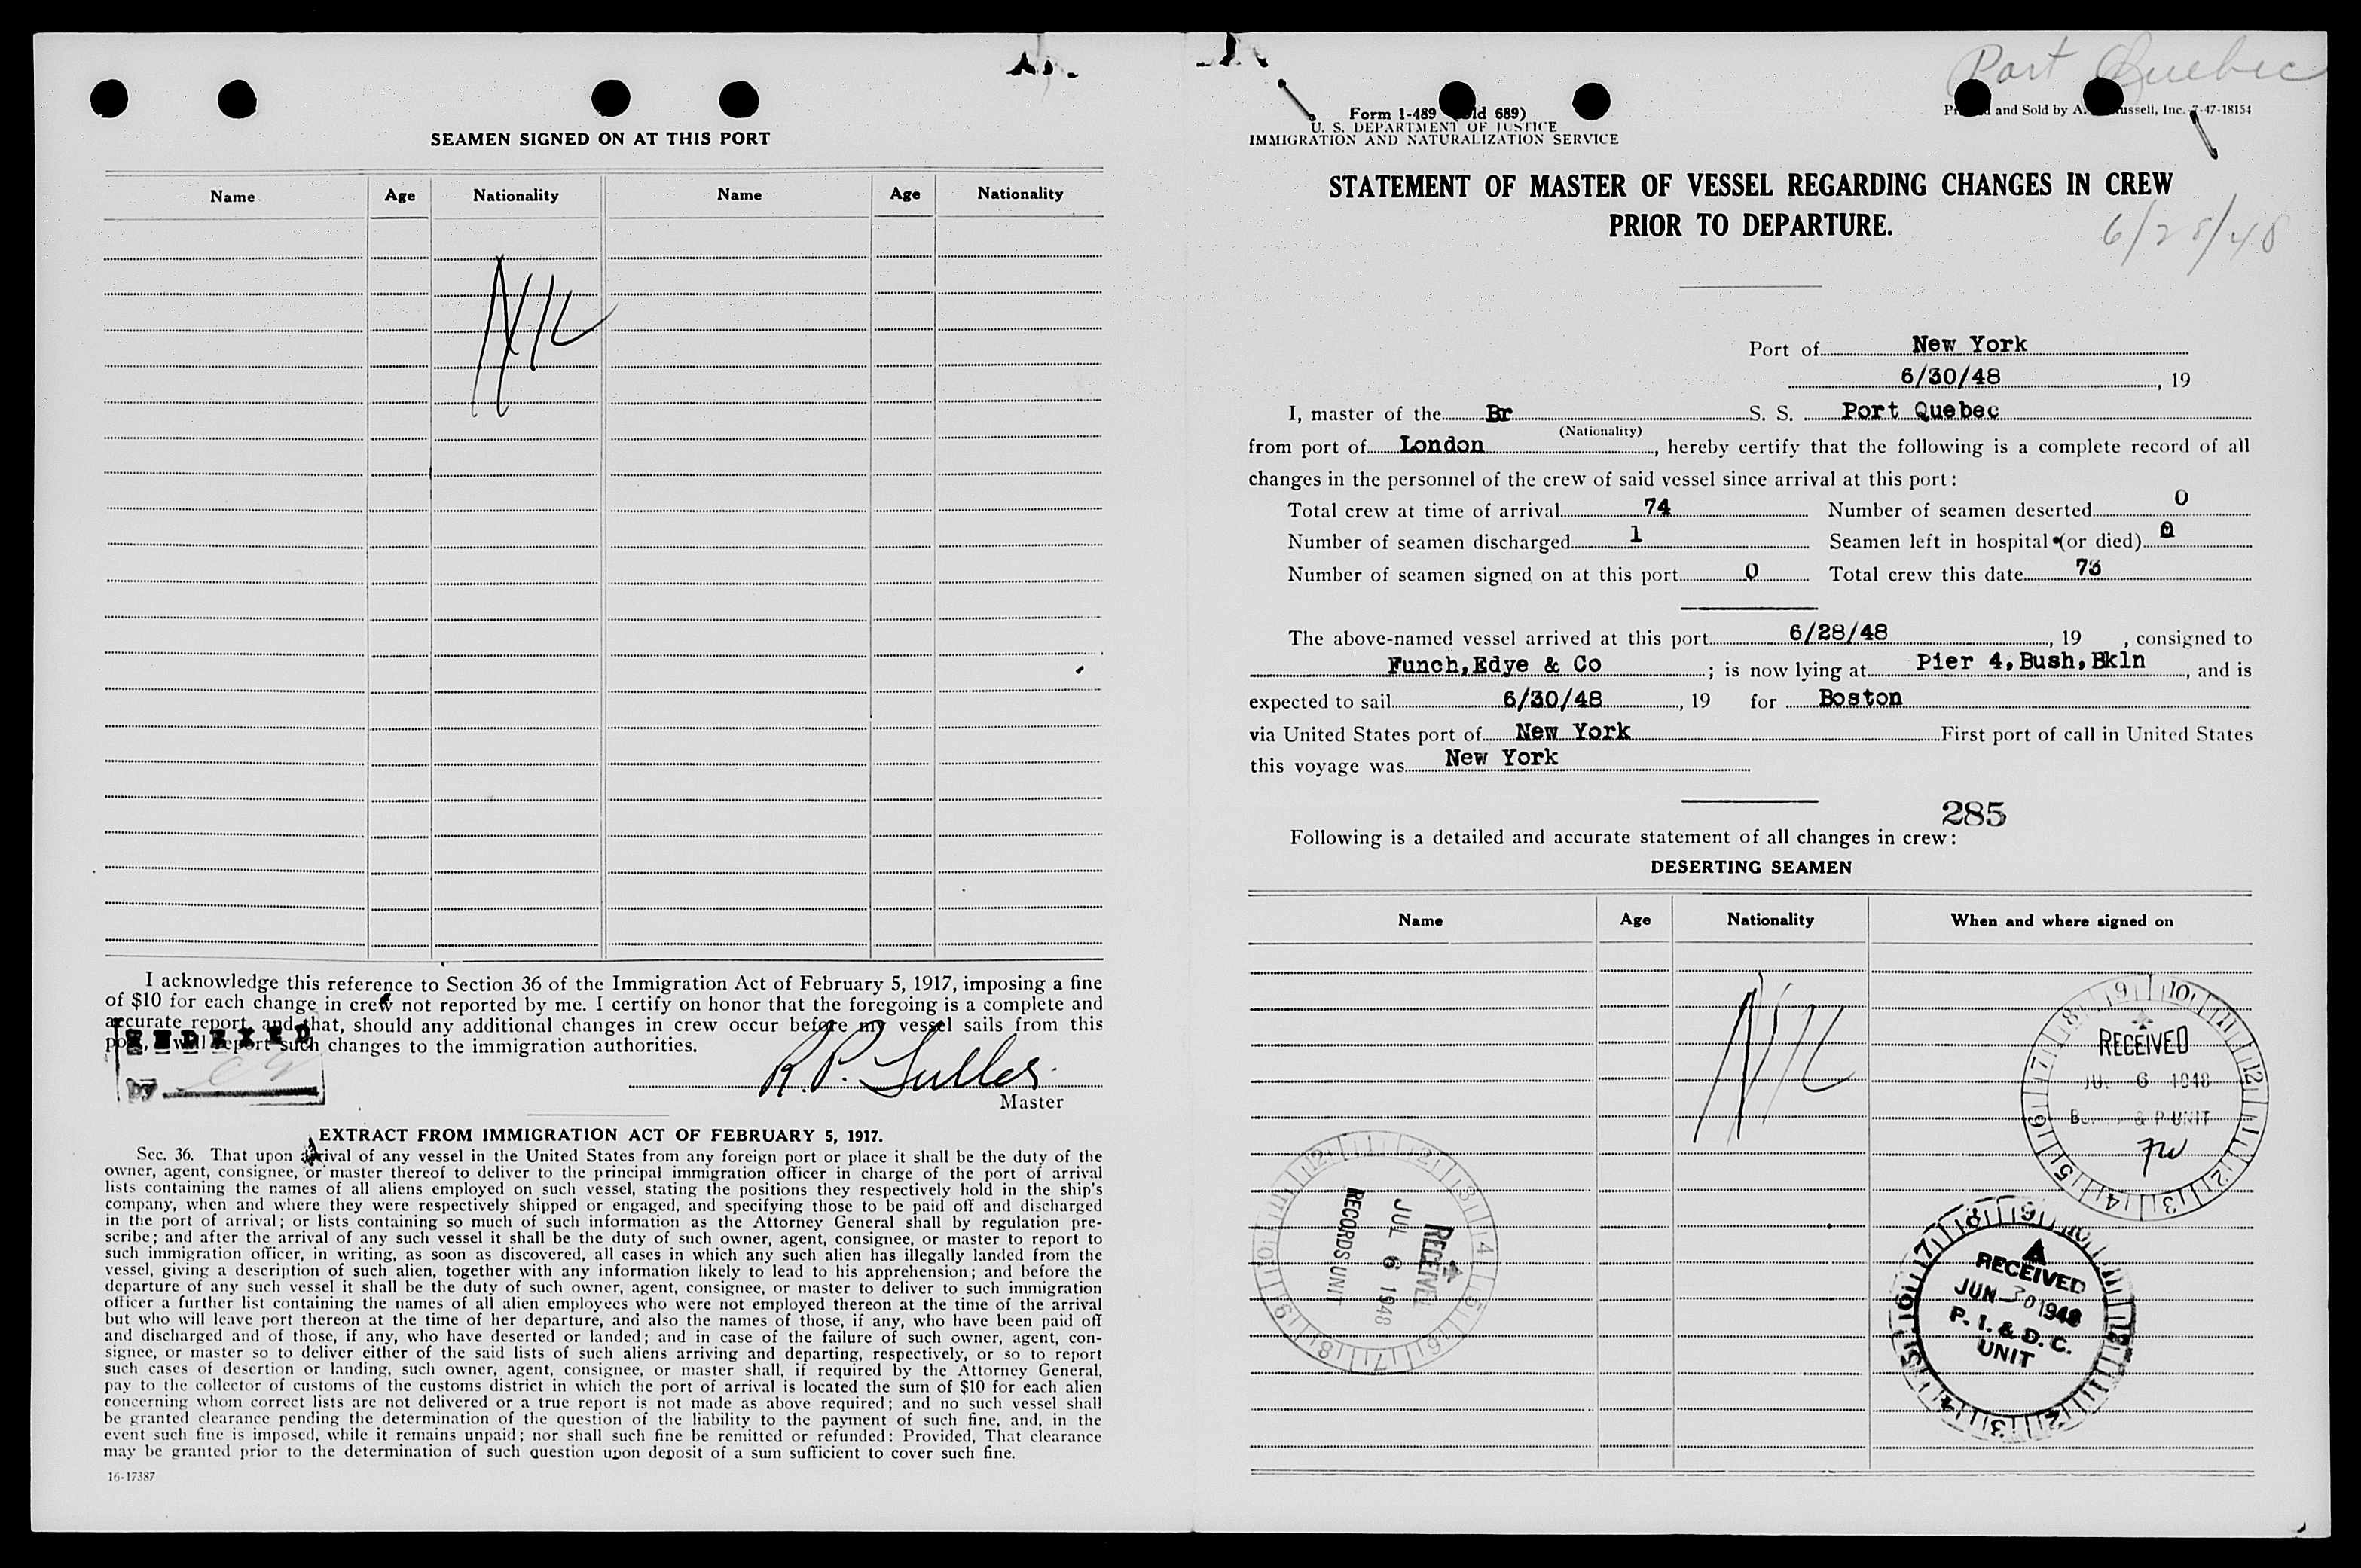 SEAMEN SIGNED ON AT THIS PORT
Name Age Nationality Name Age Nationality
Nil
I acknowledge this reference to Section 36 of the Immigration Act of February 5, 1917, imposing a fine
of $10 for each change in crew not reported by me. I certify on honor that the foregoing is a complete and
accurate report, and that, should any additional changes in crew occur before my vessel sails from this
port, I will report such changes to the immigration authorities.
INDEXED
by
R. P.
Master
EXTRACT FROM IMMIGRATION ACT OF FEBRUARY 5, 1917.
Sec. 36. That upon arrival of any vessel in the United States from any foreign port or place it shall be the duty of the
owner, agent, consignee, or master thereof to deliver to the principal immigration officer in charge of the port of arrival
lists containing the names of all aliens employed on such vessel, stating the positions they respectively hold in the ship's
company, when and where they were respectively shipped or engaged, and specifying those to be paid off and discharged
in the port of arrival; or lists containing so much of such information as the Attorney General shall by regulation pre-
scribe; and after the arrival of any such vessel it shall be the duty of such owner, agent, consignee, or master to report to
such immigration officer, in writing, as soon as discovered, all cases in which any such alien has illegally landed from the
vessel, giving a description of such alien, together with any information likely to lead to his apprehension; and before the
departure of any such vessel it shall be the duty of such owner, agent, consignee, or master to deliver to such immigration
officer a further list containing the names of all alien employees who were not employed thereon at the time of the arrival
but who will leave port thereon at the time of her departure, and also the names of those, if any, who have been paid off
and discharged and of those, if any, who have deserted or landed; and in case of the failure of such owner, agent, con-
signee, or master so to deliver either of the said lists of such aliens arriving and departing, respectively, or so to report
such cases of desertion or landing, such owner, agent, consignee, or master shall, if required by the Attorney General,
pay to the collector of customs of the customs district in which the port of arrival is located the sum of $10 for each alien
concerning whom correct lists are not delivered or a true report is not made as above required; and no such vessel shall
be granted clearance pending the determination of the question of the liability to the payment of such fine, and, in the
event such fine is imposed, while it remains unpaid; nor shall such fine be remitted or refunded: Provided, That clearance
may be granted prior to the determination of such question upon deposit of a sum sufficient to cover such fine.
16-17387
Port Quebec
Form I-489 (Old 689)
U. S. DEPARTMENT OF JUSTICE
IMMIGRATION AND NATURALIZATION SERVICE
and Sold by Inc. 7-47-18154
STATEMENT OF MASTER OF VESSEL REGARDING CHANGES IN CREW
PRIOR TO DEPARTURE.
6/28/48
Port of New York
6/30/48, 19
I, master of the Br S. S. Port Quebec
(Nationality)
from port of London, hereby certify that the following is a complete record of all
changes in the personnel of the crew of said vessel since arrival at this port:
Total crew at time of arrival 74 Number of seamen deserted 0
Number of seamen discharged 1 Seamen left in hospital (or died) 0
Number of seamen signed on at this port 0 Total crew this date 73
The above-named vessel arrived at this port 6/28/48, 19 , consigned to
Funch, Edye & Co; is now lying at Pier 4, Bush, Bkln, and is
expected to sail 6/30/48, 19 for Boston
via United States port of New York First port of call in United States
this voyage was New York
285
Following is a detailed and accurate statement of all changes in crew:
DESERTING SEAMEN
Name Age Nationality When and where signed on
Nil
RECEIVED
6 1948
& P UNIT
RECEIVED
JUL 6 1948
RECORDS UNIT
RECEIVED
JUN 30 1948
P. I. & D. C.
UNIT